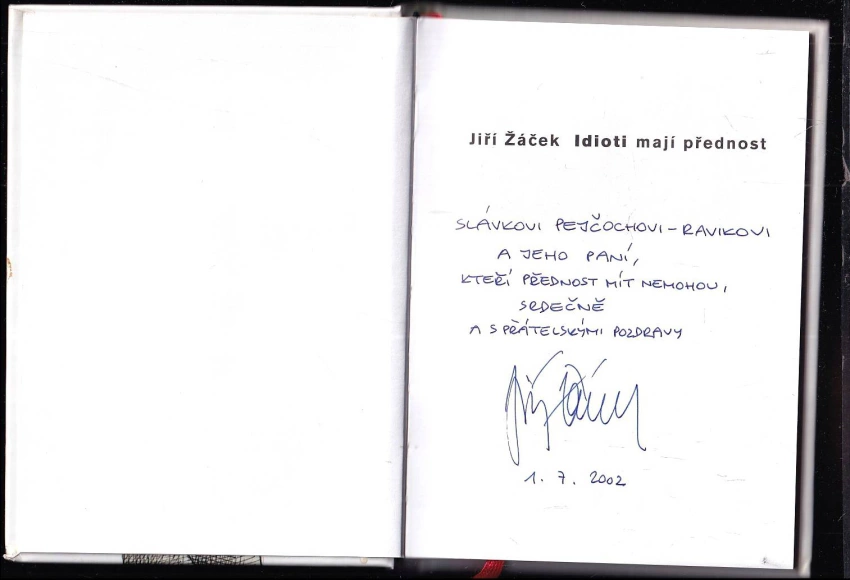 Jiří Žáček Idioti mají přednost
SLÁVKOVI PEJČOCHOVI-RAVIKOVI
A JEHO PANÍ,
KTEŘÍ PŘEDNOST MÍT NEMOHOU,
SRDEČNĚ
A S PŘÁTELSKÝMI POZDRAVY
Jiří Žáček
1. 7. 2002